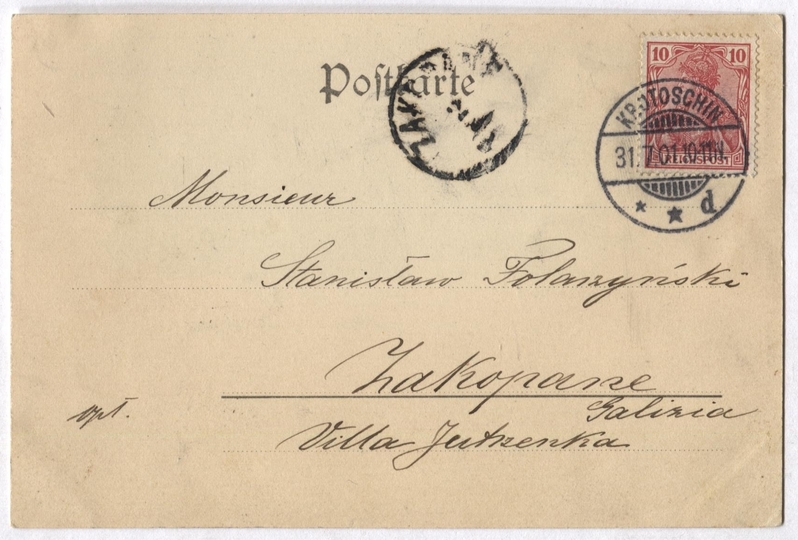 Postkarte
ZAKOPANE
10 10
REICHSPOST
KROTOSCHIN
31.7.01.10-11N.
* * d
Monsieur
Stanisław
Zakopane
Galizia
opt.
Villa Jutrzenka